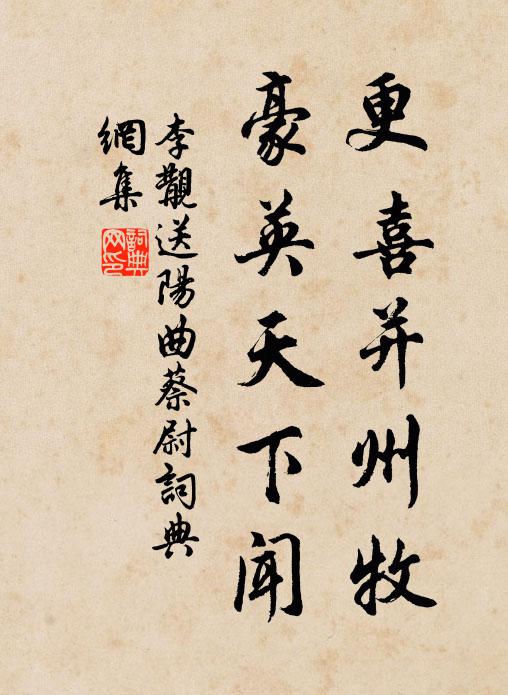 更喜并州牧
豪英天下闻
李觏送陽曲蔡尉詞典
網集
詞典
网印